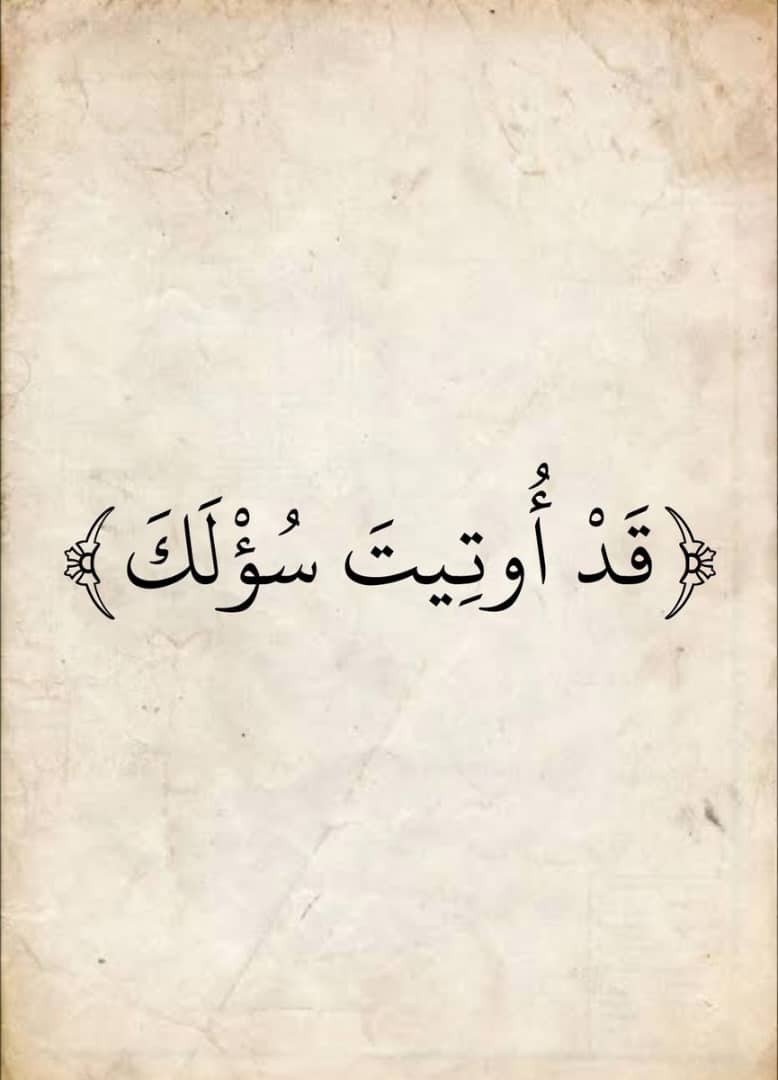 ﴿قَدْ أُوتِيتَ سُؤْلَكَ﴾